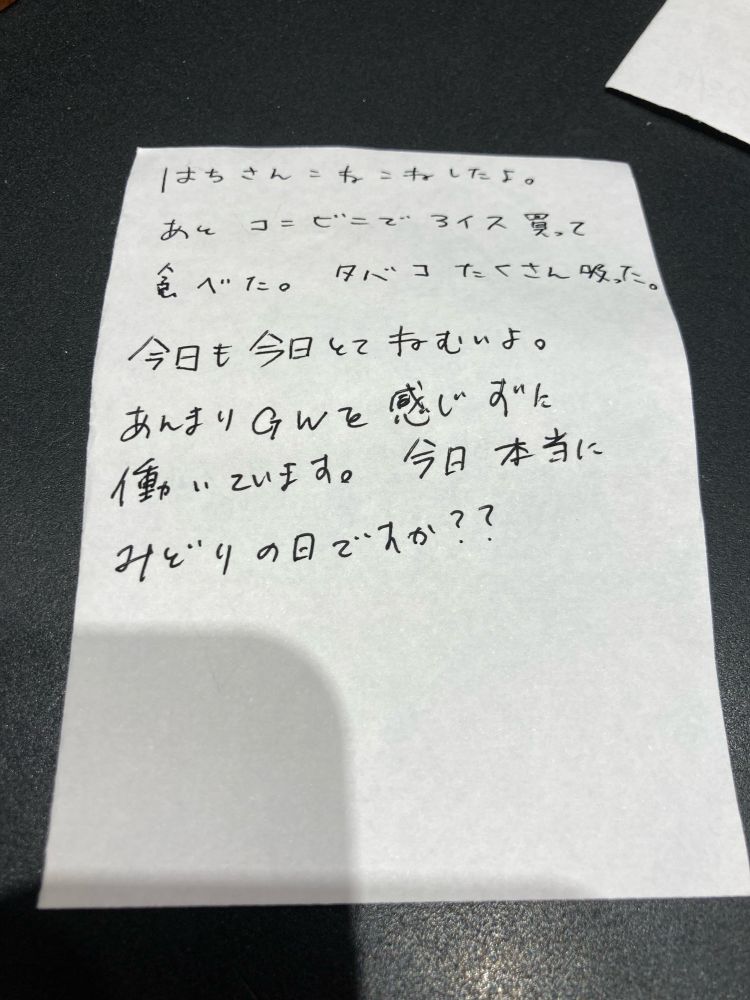 はちさんこねこねしたよ。
あと コンビニで アイス 買って
食べた。 タバコ たくさん 吸った。
今日も 今日とて ねむいよ。
あんまり GWを 感じ ずに
働いています。 今日 本当に
みどりの日ですか??